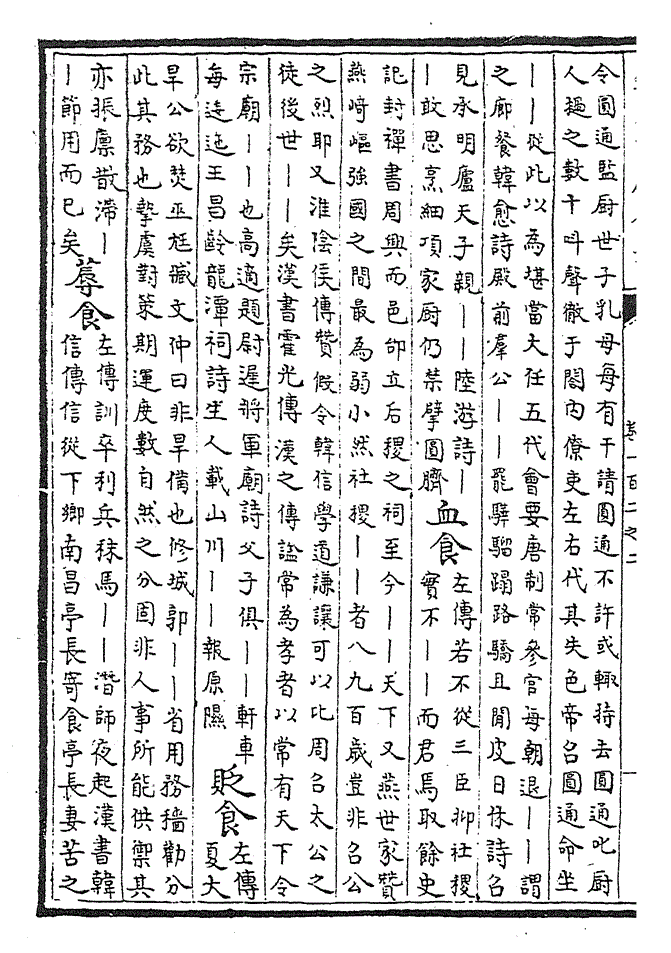 卷一百二之二
令圓通監厨世子乳母每有干請圓通不許或輒持去圓通叱厨
人撾之數十叫聲徹于閤內僚吏左右代其失色帝召圓通命坐
丨丨從此以為堪當大任五代會要唐制常參官每朝退丨丨謂
之廊餐韓愈詩殿前羣公丨丨罷驊騮蹋路驕且閒皮日休詩召
見承明廬天子親丨丨陸游詩丨
丨敢思烹細項家厨仍禁擘圓臍
血食
左傳若不從三臣抑社稷
實不丨丨而君焉取餘史
記封禪書周興而邑邰立后稷之祠至今丨丨天下又燕世家贊
燕崎嶇強國之間最為弱小然社稷丨丨者八九百歲豈非召公
之烈耶又淮陰侯傳贊假令韓信學道謙讓可以比周召太公之
徒後世丨丨矣漢書霍光傳漢之傳諡常為孝者以常有天下令
宗廟丨丨也高適題尉遲將軍廟詩父子俱丨丨軒車
每逶迤王昌齡龍潭祠詩生人載山川丨丨報原隰
貶食
左傳
夏大
旱公欲焚巫尫臧文仲曰非旱備也修城郭丨丨省用務穡勸分
此其務也摯虞對策期運度數自然之分固非人事所能供禦其
亦振廪散滯丨
丨節用而已矣
蓐食
左傳訓卒利兵秣馬丨丨潛師夜起漢書韓
信傳信從下鄉南昌亭長寄食亭長妻苦之